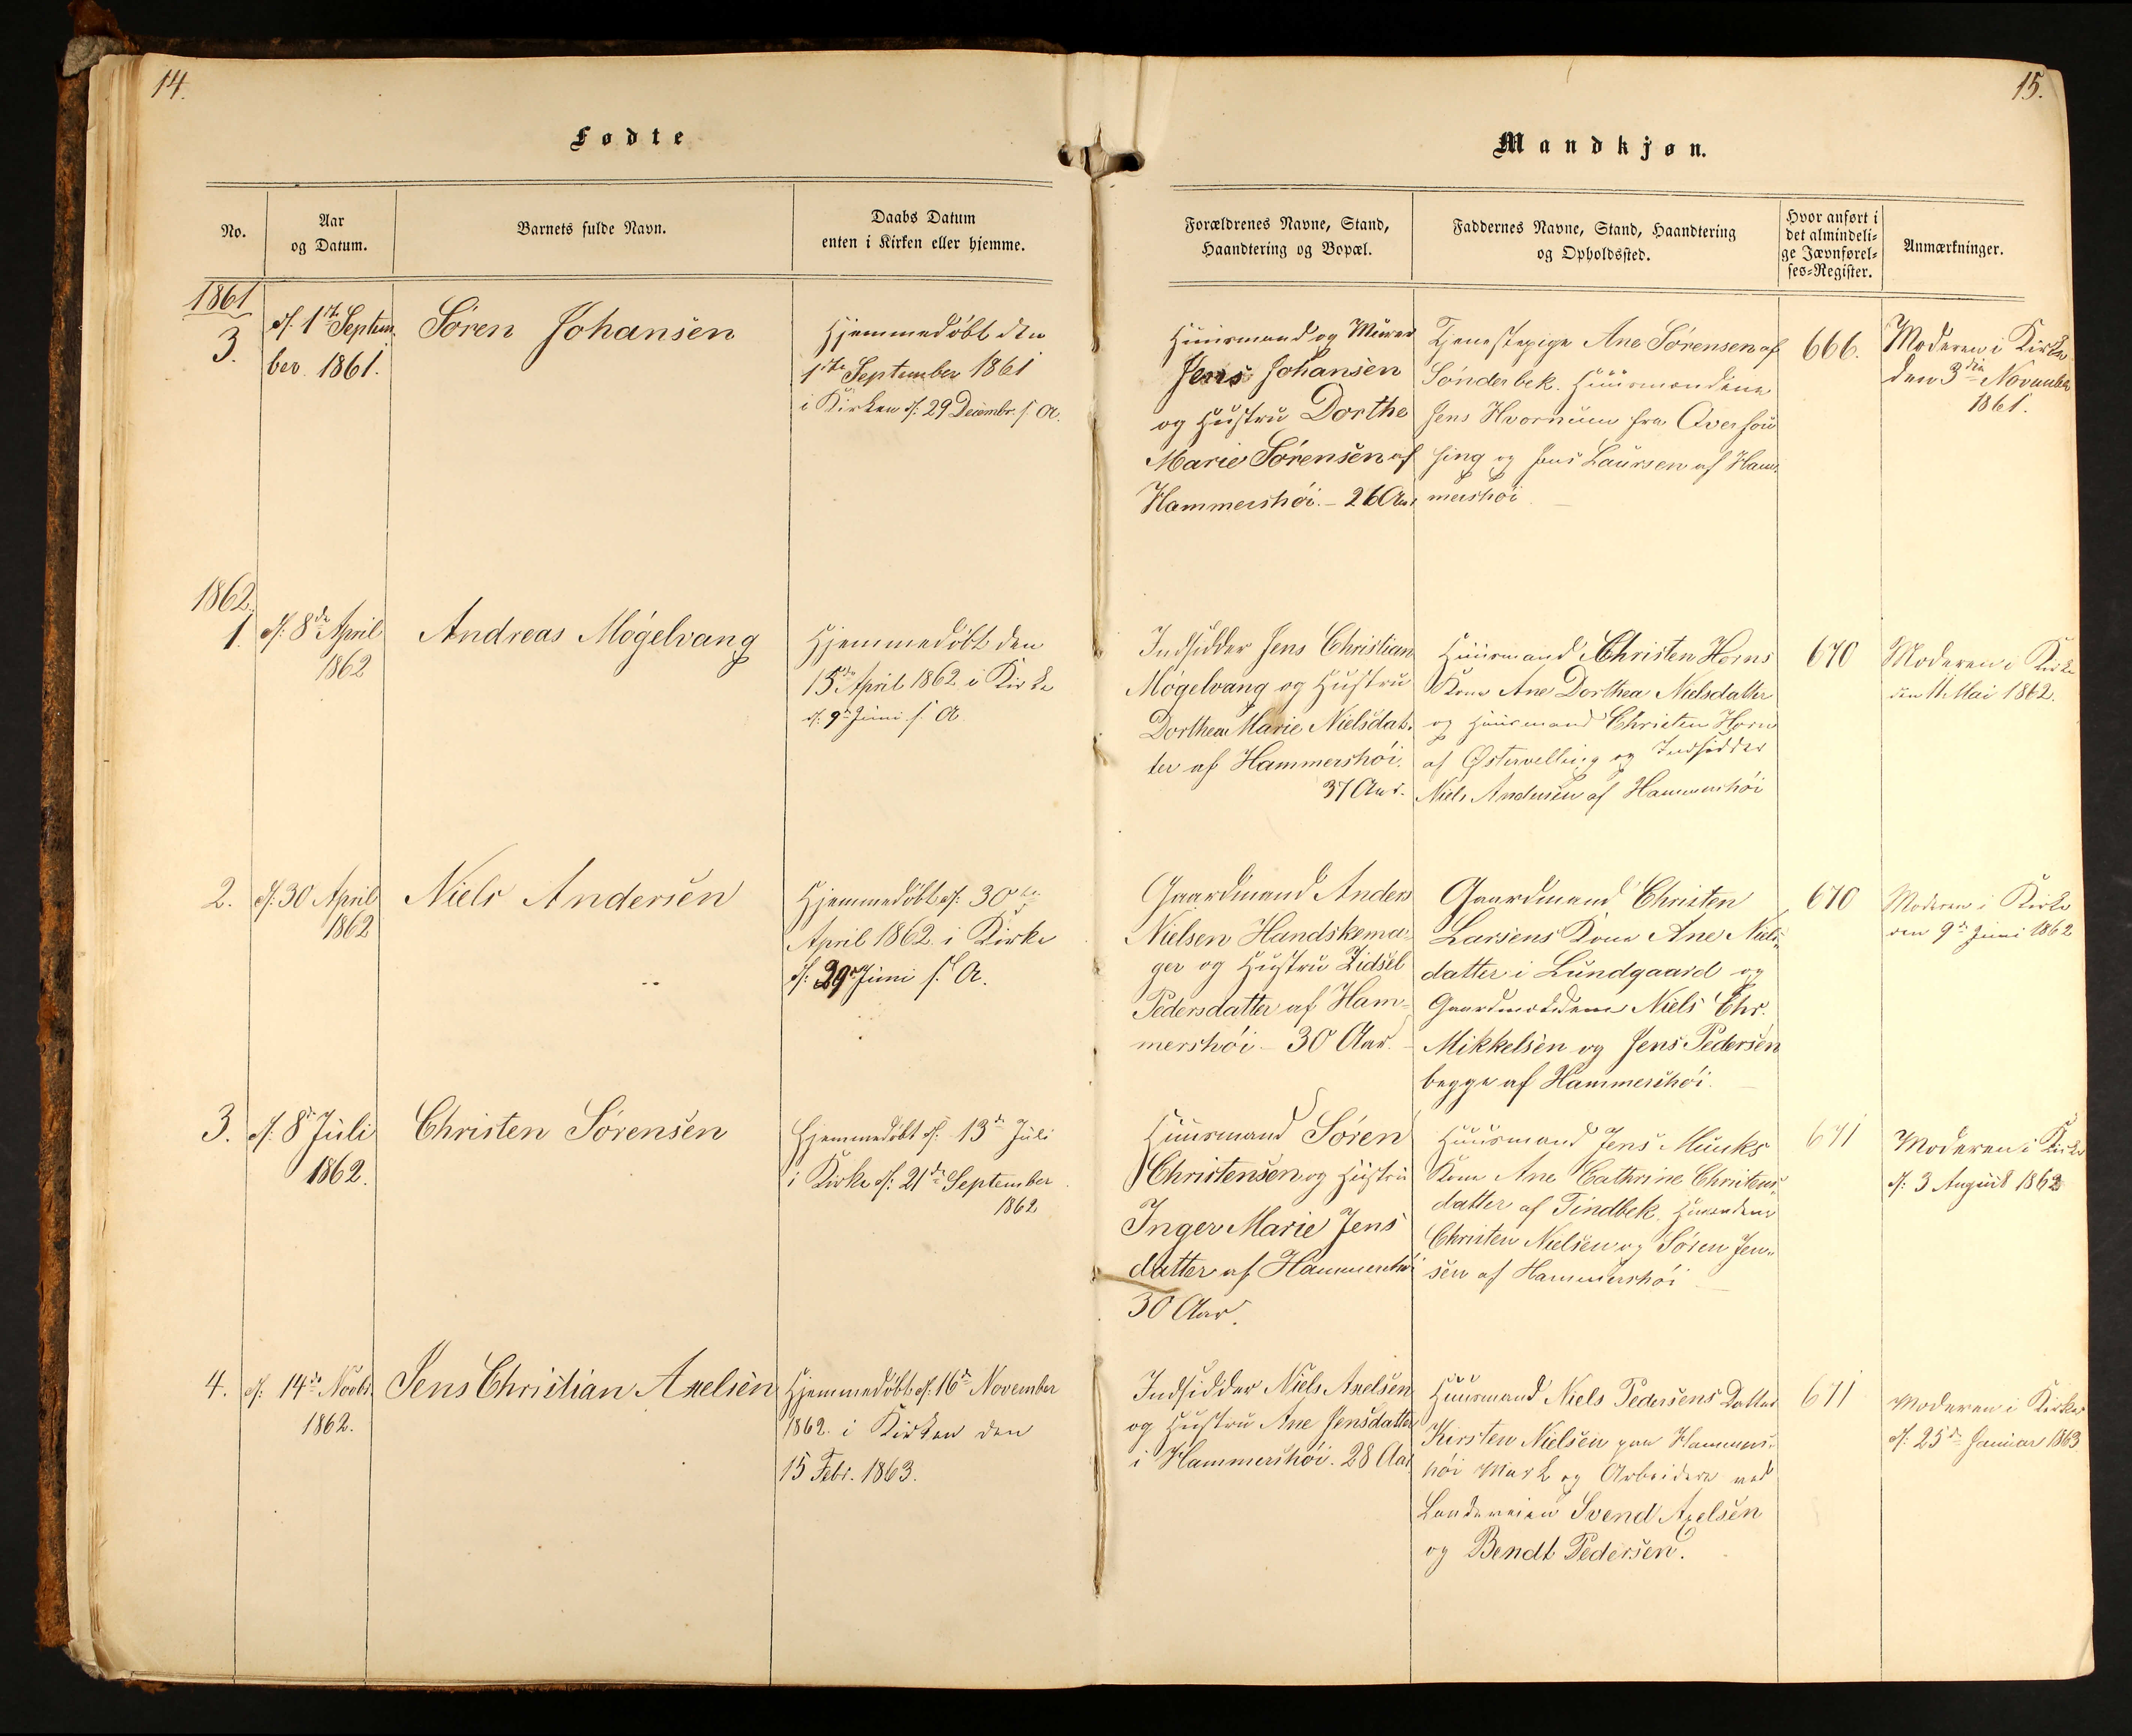 14.
Fødte
No.
Aar
og Datum.
Barnets fulde Navn.
Daabs Datum
enten i Kirken eller hjemme.
1861
3.
d. 1ste Septem-
ber 1861.
Sören Johansen
Hjemmedöbt den
1ste September 1861
i Kirken d. 29 Decembr. s. A.
1862.
1.
d. 8de April
1862
Andreas Mögelvang
Hjemmedöbt den
15de April 1862 i Kirke
d. 9de Juni s. A
2.
d. 30 April
1862
Niels Andersen
Hjemmedöbt d. 30te
April 1862 i Kirke
d. 29de Juni s. A.
3.
d. 8de Juli
1862.
Christen Sörensen
Hjemmedöbt d. 13de Juli
i Kirke d. 21de September
1862
4.
d. 14de Novbr.
1862.
Jens Christian Axelsen
Hjemmedöbt d. 16de November
1862. i Kirken den
15 Febr. 1863.
15.
Mandkjøn.
Forældrenes Navne, Stand,
Haandtering og Bopæl.
Faddernes Navne, Stand, Haandtering
og Opholdssted.
Hvor anført i
det almindeli-
ge Jævnførel-
ses-Register.
Anmærkninger.
Huusmand og Murer
Jens Johansen
og Hustru Dorthe
Marie Sörensen af
Hammershöi. - 26 Aar
Tjenestepige Ane Sörensen af
Sönderbek. Huusmændene
Jens Hvornum fra Over
og Jens Laursen af Ham-
mershöi
666.
Moderen i Kirke
den 3die November
1861.
Indsidder Jens Christian
Mögelvang og Hustru
Dorthea Marie Nielsdat-
ter af Hammershöi.
37 Aar.
Huusmand Christen Horns
Kone Ane Dorthea Nielsdatter
og Huusmand Christen Horn
af Østervelling og Indsidder
Niels Andersen af Hammershöi
670
Moderen i Kirke
den 11 Mai 1862.
Gaardmand Anders
Nielsen Handskema-
ger og Hustru Zidsel
Pedersdatter af Ham-
mershöi - 30 Aar.
Gaardmand Christen
Larsens Kone Ane Niels-
datter i Lundgaard og
Gaardmændene Niels Chr.
Mikkelsen og Jens Pedersen
begge af Hammershöi.
670
Moderen i Kirke
den 9de Juni 1862
Huusmand Sören
Christensen og Hustru
Inger Marie Jens
datter af Hammershöi
30 Aar.
Huusmand Jens Munks
Kone Ane Cathrine Christens-
datter af Tindbek.
Christen Nielsen og Sören Jen-
sen af Hammershöi
671
Moderen i Kirke
d. 3 August 1862
Indsidder Niels Axelsen
og Hustru Ane Jensdatter
i Hammershöi. 28 Aar
Huusmand Niels Pedersens Datter
Kirsten Nielsen paa Hammers-
höi Mark og Arbeidere ved
Landeveien Svend Axelsen
og Bendt Pedersen.
671
Moderen i Kirke
d. 25de Januar 1863